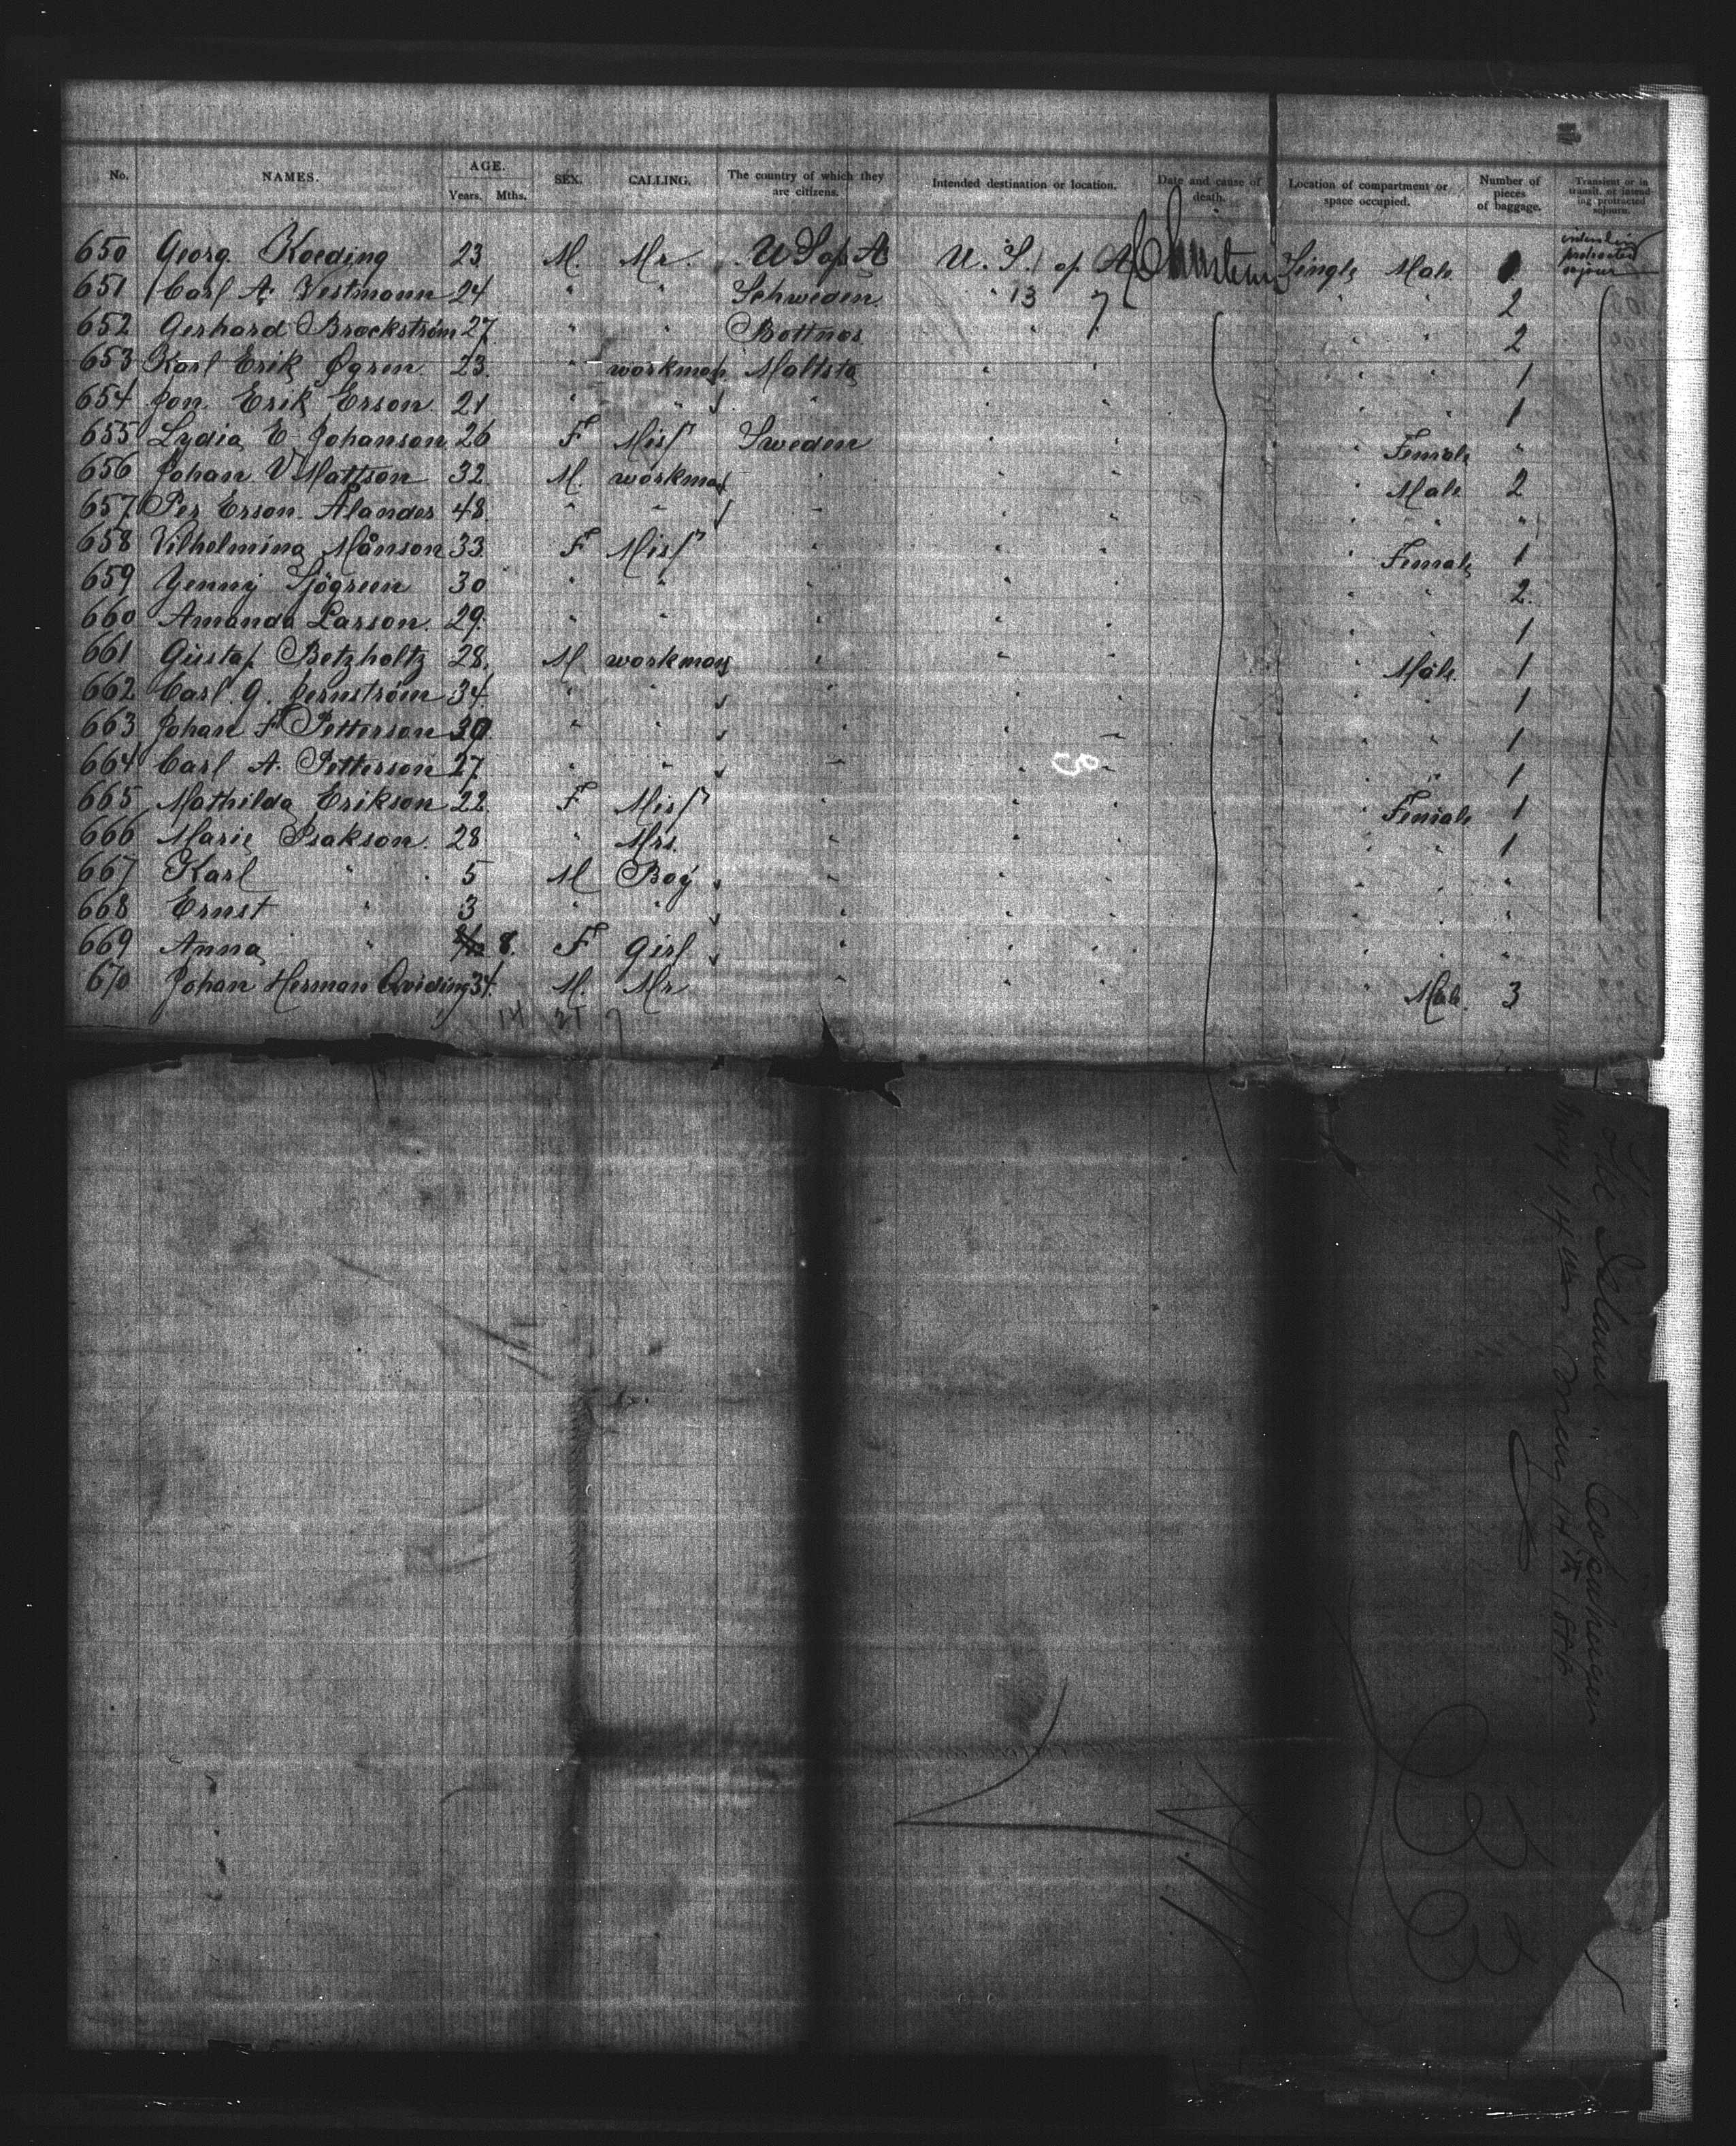 No. NAMES. AGE. Years. Mths. SEX. CALLING. The country of which they are citizens. Intended destination or location. Date and cause of death. Location of compartment or space occupied. Number of pieces of baggage. Transient or in transit, or intending protracted sojourn.
650 Georg Koeding 23 M. Mr. U S of A U. S. of A Single Male intending protracted sojour
651 Carl A. Vestmann 24 " " Schweden " 13 7 " " 2
652 Gerhard Brockström 27 " " Bottnas " " " " 2
653 Karl Erik Ögren 23. " workman Maltsta " " " " 1
654 Jon Erik Erson 21 " " " " " " " 1
655 Lydia E Johanson 26 F Miss Sweden " " " Female "
656 Johan V Mattson 32 M. workman " " " " Male 2
657 Per Erson Ålander 48 " " " " " " " "
658 Vilhelmina Månson 33 F Miss " " " " Female 1
659 Yenny Sjögreen 30 " " " " " " " 2.
660 Amanda Larson 29 " " " " " " " 1
661 Gustaf Betzholtz 28. M workman " " " " Male. 1
662 Carl G. Jernström 34 " " " " " " " 1
663 Johan F Petterson 30 " " " " " " " 1
664 Carl A. Petterson 27 " " " " " " " 1
665 Mathilda Erikson 22 F Miss " " " " Female 1
666 Marie Isakson 28 " Mrs. " " " " " 1
667 Karl " 5 M Boy " " " " " "
668 Ernst " 3 " " " " " " " "
669 Anna " 8. F Girl " " " " " "
670 Johan Herman Qviding 34 M. Mr " " Male. 3
14 21 7
"Island" Copenhagen
May 14
May 14th 188